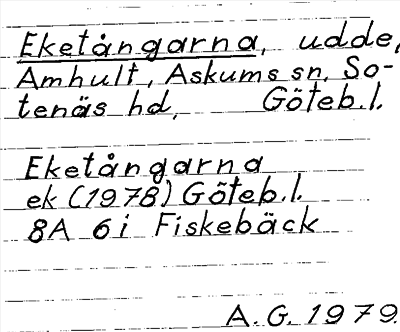 Eketångarna, udde,
Amhult, Askums sn, So-
tenäs hd, Göteb.l.
Eketångarna
ek (1978) Göteb.l.
8A 6i Fiskebäck
A.G. 1979.